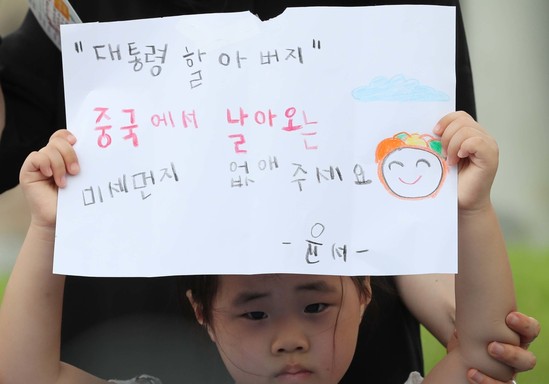 "대통령 할아버지"
중국에서 날아오는
미세먼지 없애 주세요
- 윤서 -